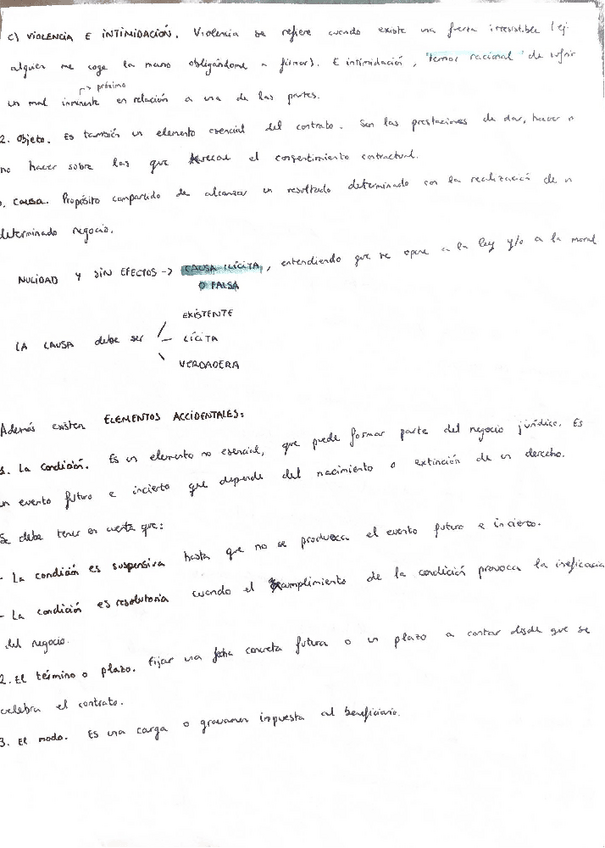 c) VIOLENCIA E INTIMIDACIÓN. Violencia se refiere cuando existe una fuerza irresistible (ej
alguien me coge la mano obligándome a firmar). E intimidación, "temor racional" de sufrir
→ próximo
un mal inminente en relación a una de las partes.
2. Objeto. Es también un elemento esencial del contrato. Son las prestaciones de dar, hacer o
no hacer sobre las que recae el consentimiento contractual.
3. Causa. Propósito compartido de alcanzar un resultado determinado con la realización de un
determinado negocio.
NULIDAD Y SIN EFECTOS → CAUSA ILÍCITA, entendiendo que se opone a la ley y/o a la moral
O FALSA
EXISTENTE
LA CAUSA debe ser LÍCITA
VERDADERA
Además existen ELEMENTOS ACCIDENTALES:
1. La Condición. Es un elemento no esencial, que puede formar parte del negocio jurídico. Es
un evento futuro e incierto que depende del nacimiento o extinción de un derecho.
Se debe tener en cuenta que:
- La condición es suspensiva hasta que no se produzca el evento futuro e incierto.
- La condición es resolutoria cuando el cumplimiento de la condición provoca la ineficacia
del negocio.
2. El término o plazo. Fijar una fecha concreta futura o un plazo a contar desde que se
celebra el contrato.
3. El modo. Es una carga o gravamen impuesta al beneficiario.